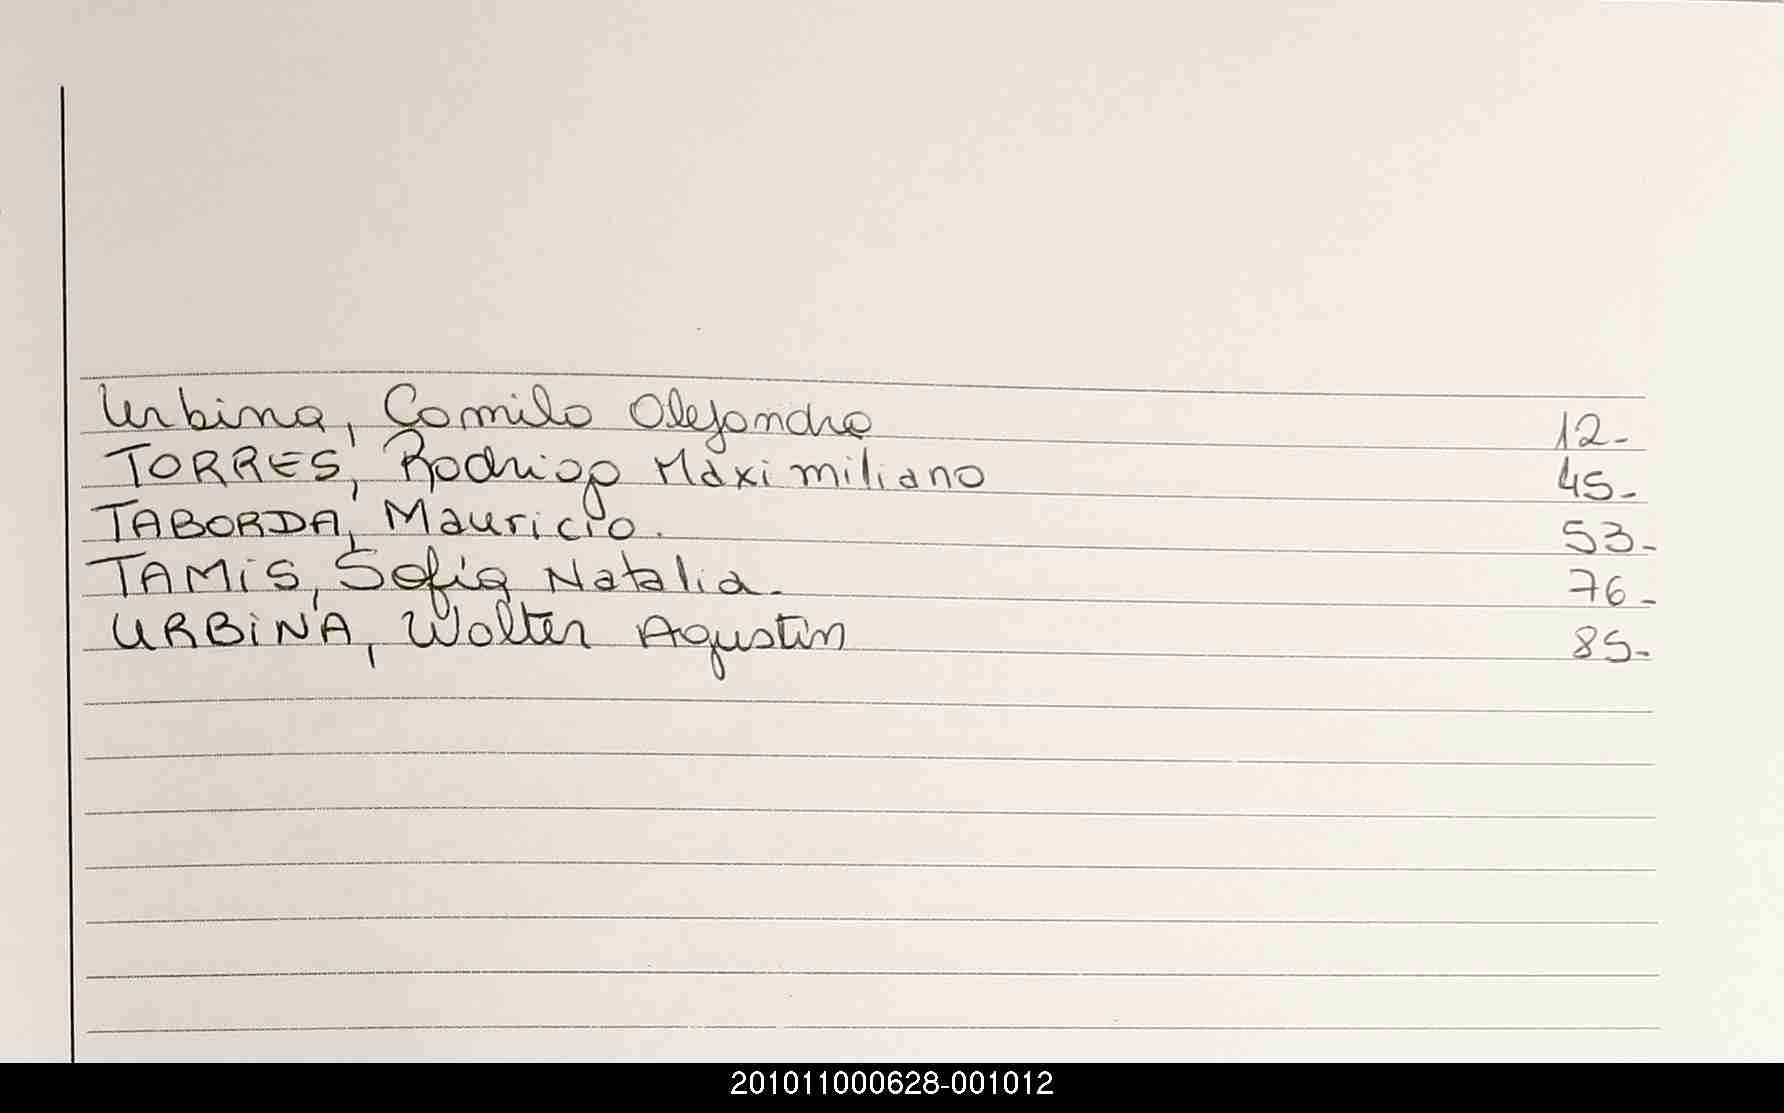 Urbina, Camilo Alejandro 12-
TORRES, Rodrigo Maximiliano 45-
TABORDA, Mauricio. 53-
TAMiS, Sofia Natalia. 76-
URBiNA, Walter Agustin 85-
201011000628-001012